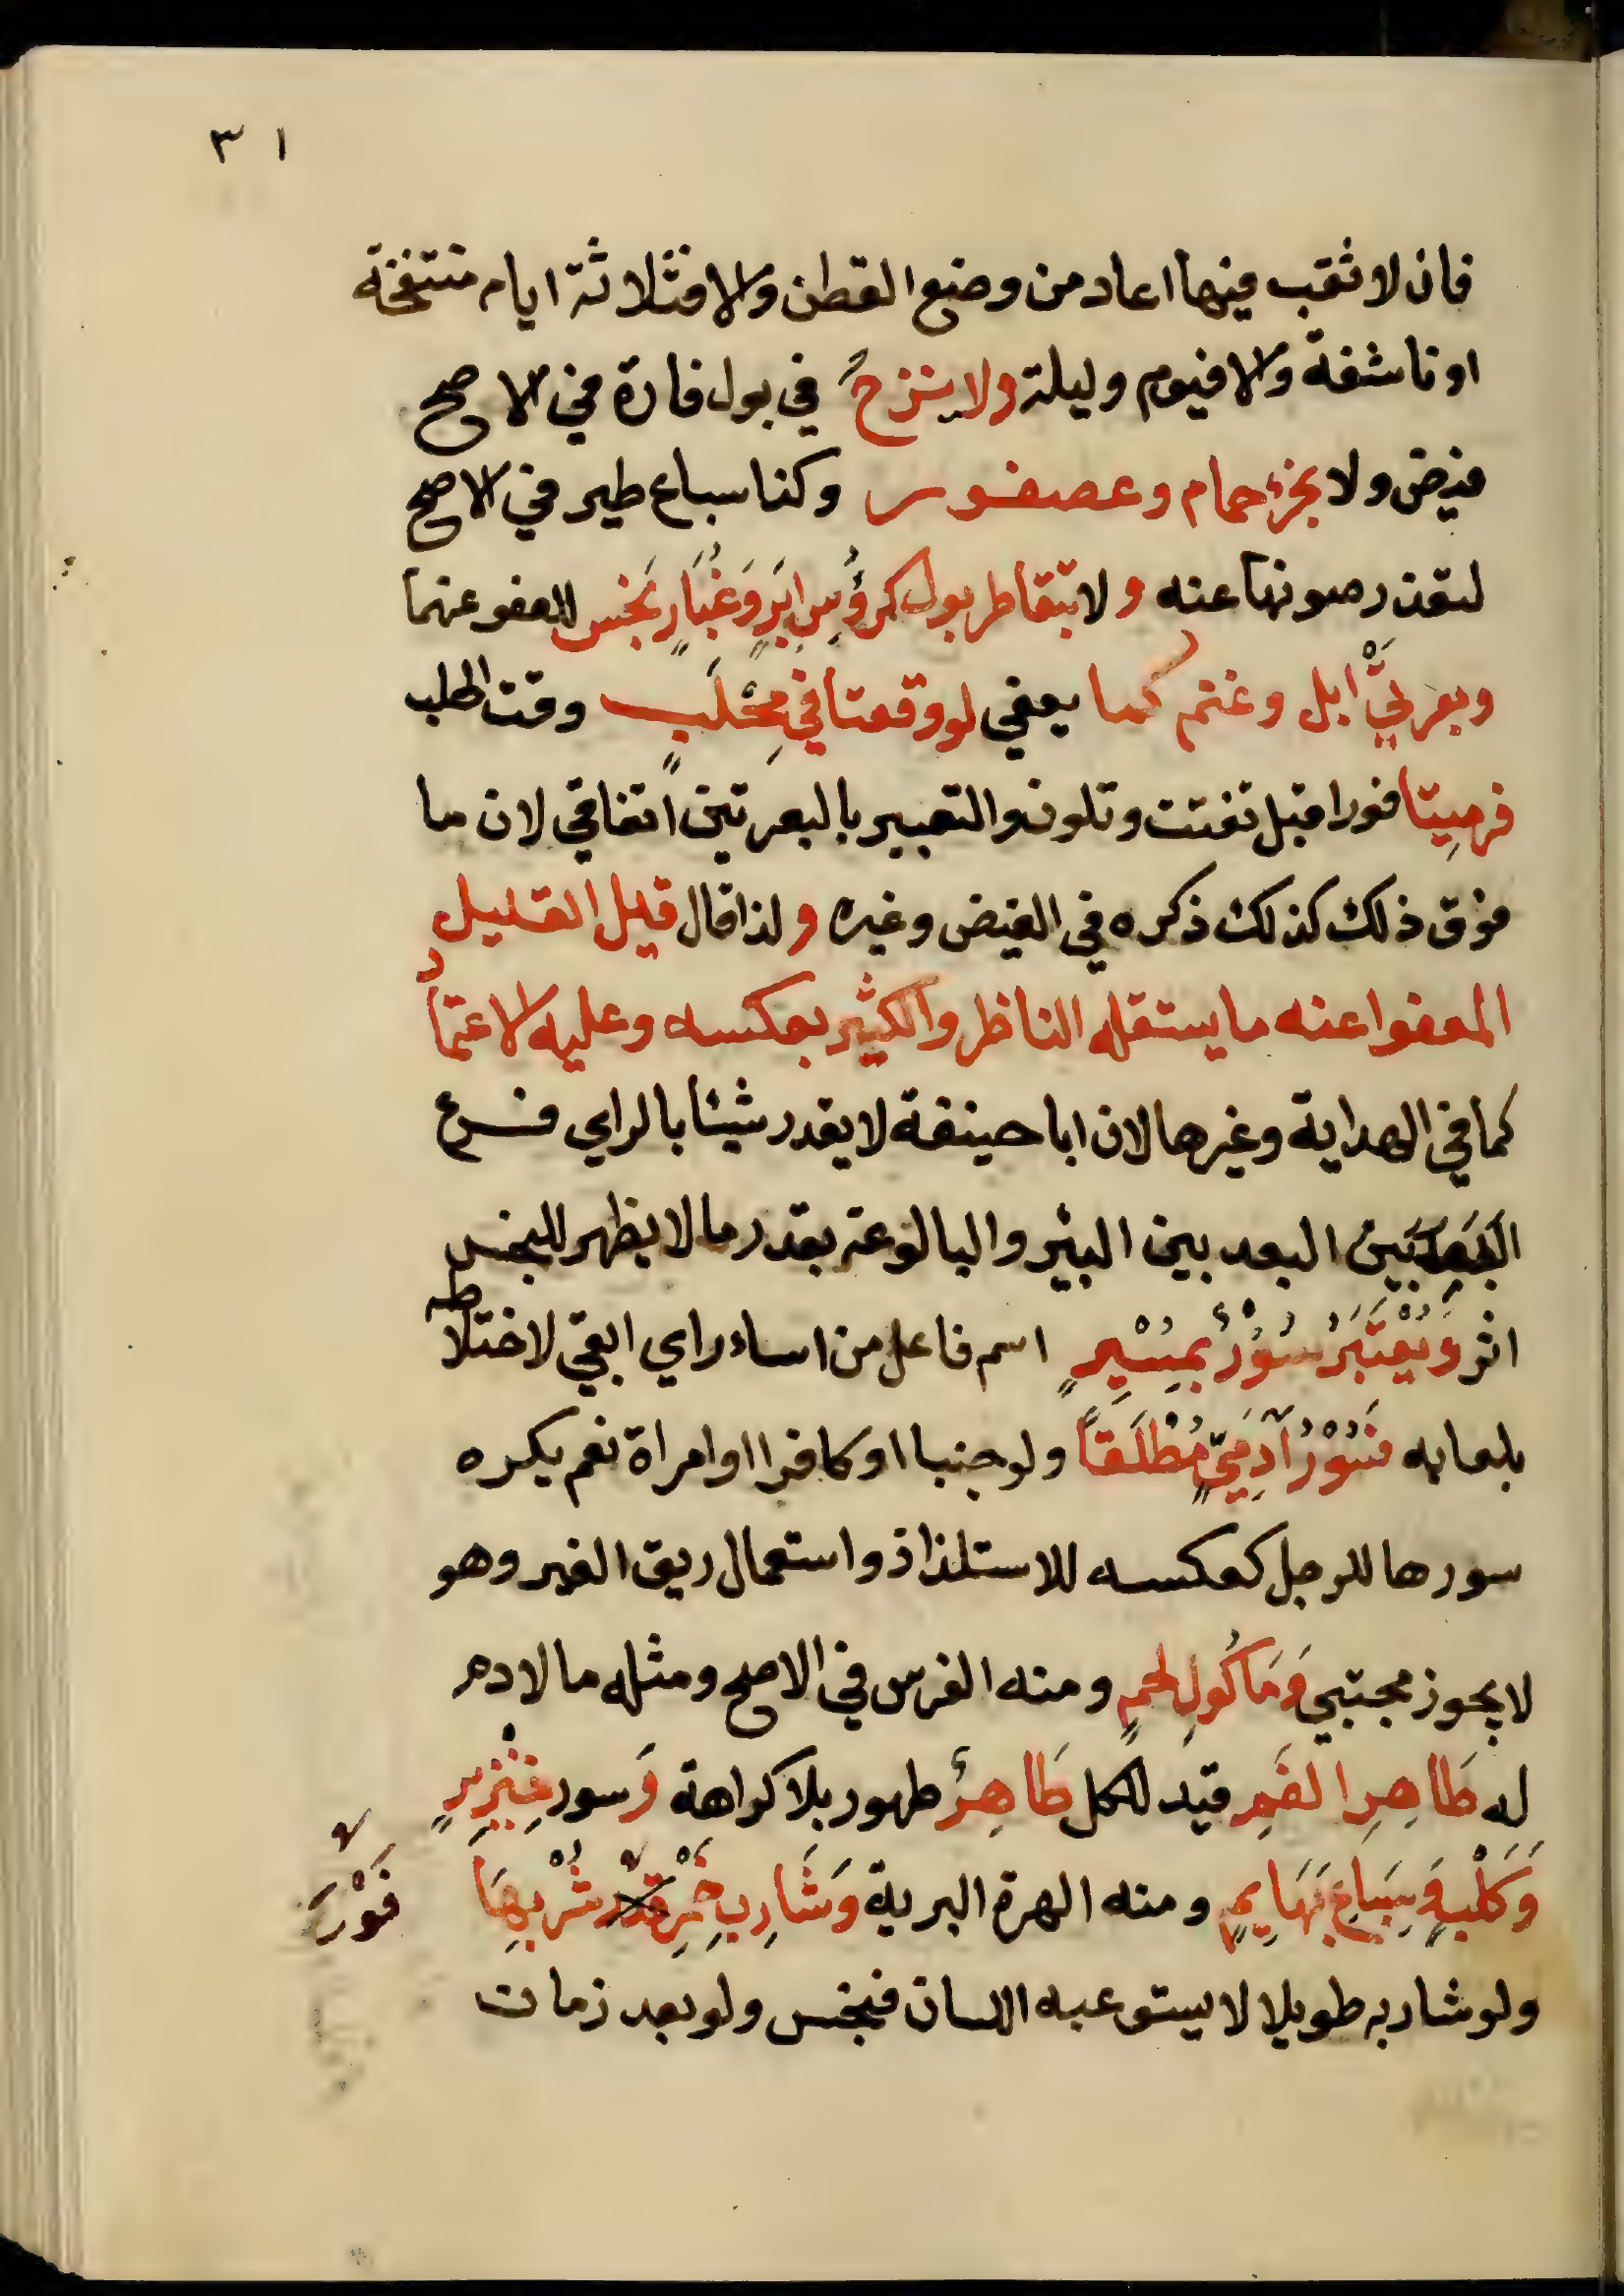 ٣١
فان لا ثقب فيها اعاد من وضع القطن والا فثلاثة ايام منتفخة
او ناشفة والا فيوم وليلة ولا ينزح في بول فارة في الاصح
فيض ولا بخرء حمام وعصفور وكذا سباع طير في الاصح
لتعذر صونها عنه ولا بتقاطر بول كرؤس ابر وغبار نجس للعفو عنهما
وبعرتي ابل وغنم كما يعفي لو وقعتا في محلب وقت الحلب
فرميتا فورا قبل تفتت وتلون والتعبير بالبعرتين اتفاقي لان ما
فوق ذلك كذلك ذكره في الفيض وغيره ولذا قال قيل القليل
المعفوا عنه ما يستقله الناظر والكثير بعكسه وعليه الاعتماد
كما في الهداية وغيرها لان ابا حنيفة لا يقدر شيئا بالراي فرع
البعد بين البئر والبالوعة بقدر ما لا يظهر للنجس
اثر وَيُعْتَبَرُ سُؤْرٌ بِمُسْئِرٍ اسم فاعل من اساء راي ابقي لاختلاطه
بلعابه فَسُوْرُ آدَمِيٍّ مُطْلَقًا ولو جنبا او كافرا او امراة نعم يكره
سورها للرجل كعكسه للاستلذاذ واستعمال ريق الغير وهو
لا يجوز مجتبي وَمَاكُولِ لحمٍ ومنه الفرس في الاصح ومثله ما لا دم
له طَاهِرِ الفَمِ قيد للكل طَاهِرٌ طهور بلا كراهة وَسور خِنْزِيرٍ
وَكَلْبٍ وَسِبَاعِ بَهَايِمٍ ومنه الهرة البرية وَشَارِبِ خَمْرٍ شُرْبِهَا
فَوْرَ
ولو شاربه طويلا لا يستوعبه اللسان فنجس ولو بعد زمان